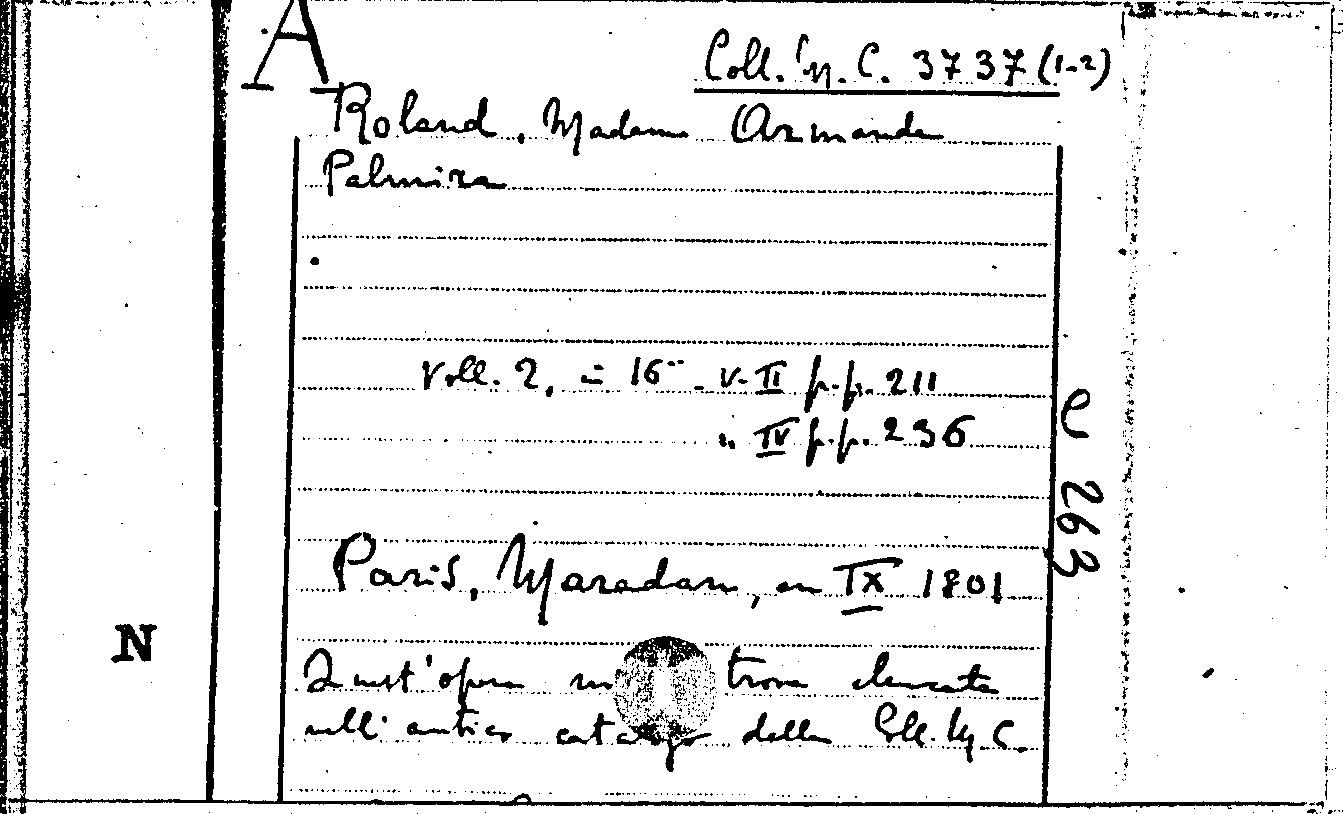 A
Coll. M. C. 3737 (1-2)
Roland, Madame Armande
Palmira
Voll. 2, in 16° - V. II p.p. 211
" IV p.p. 236
C 263
Paris, Maradan, an IX 1801
N
Quest'opera non trova elencata
nell'antico catalogo della Coll. M. C.